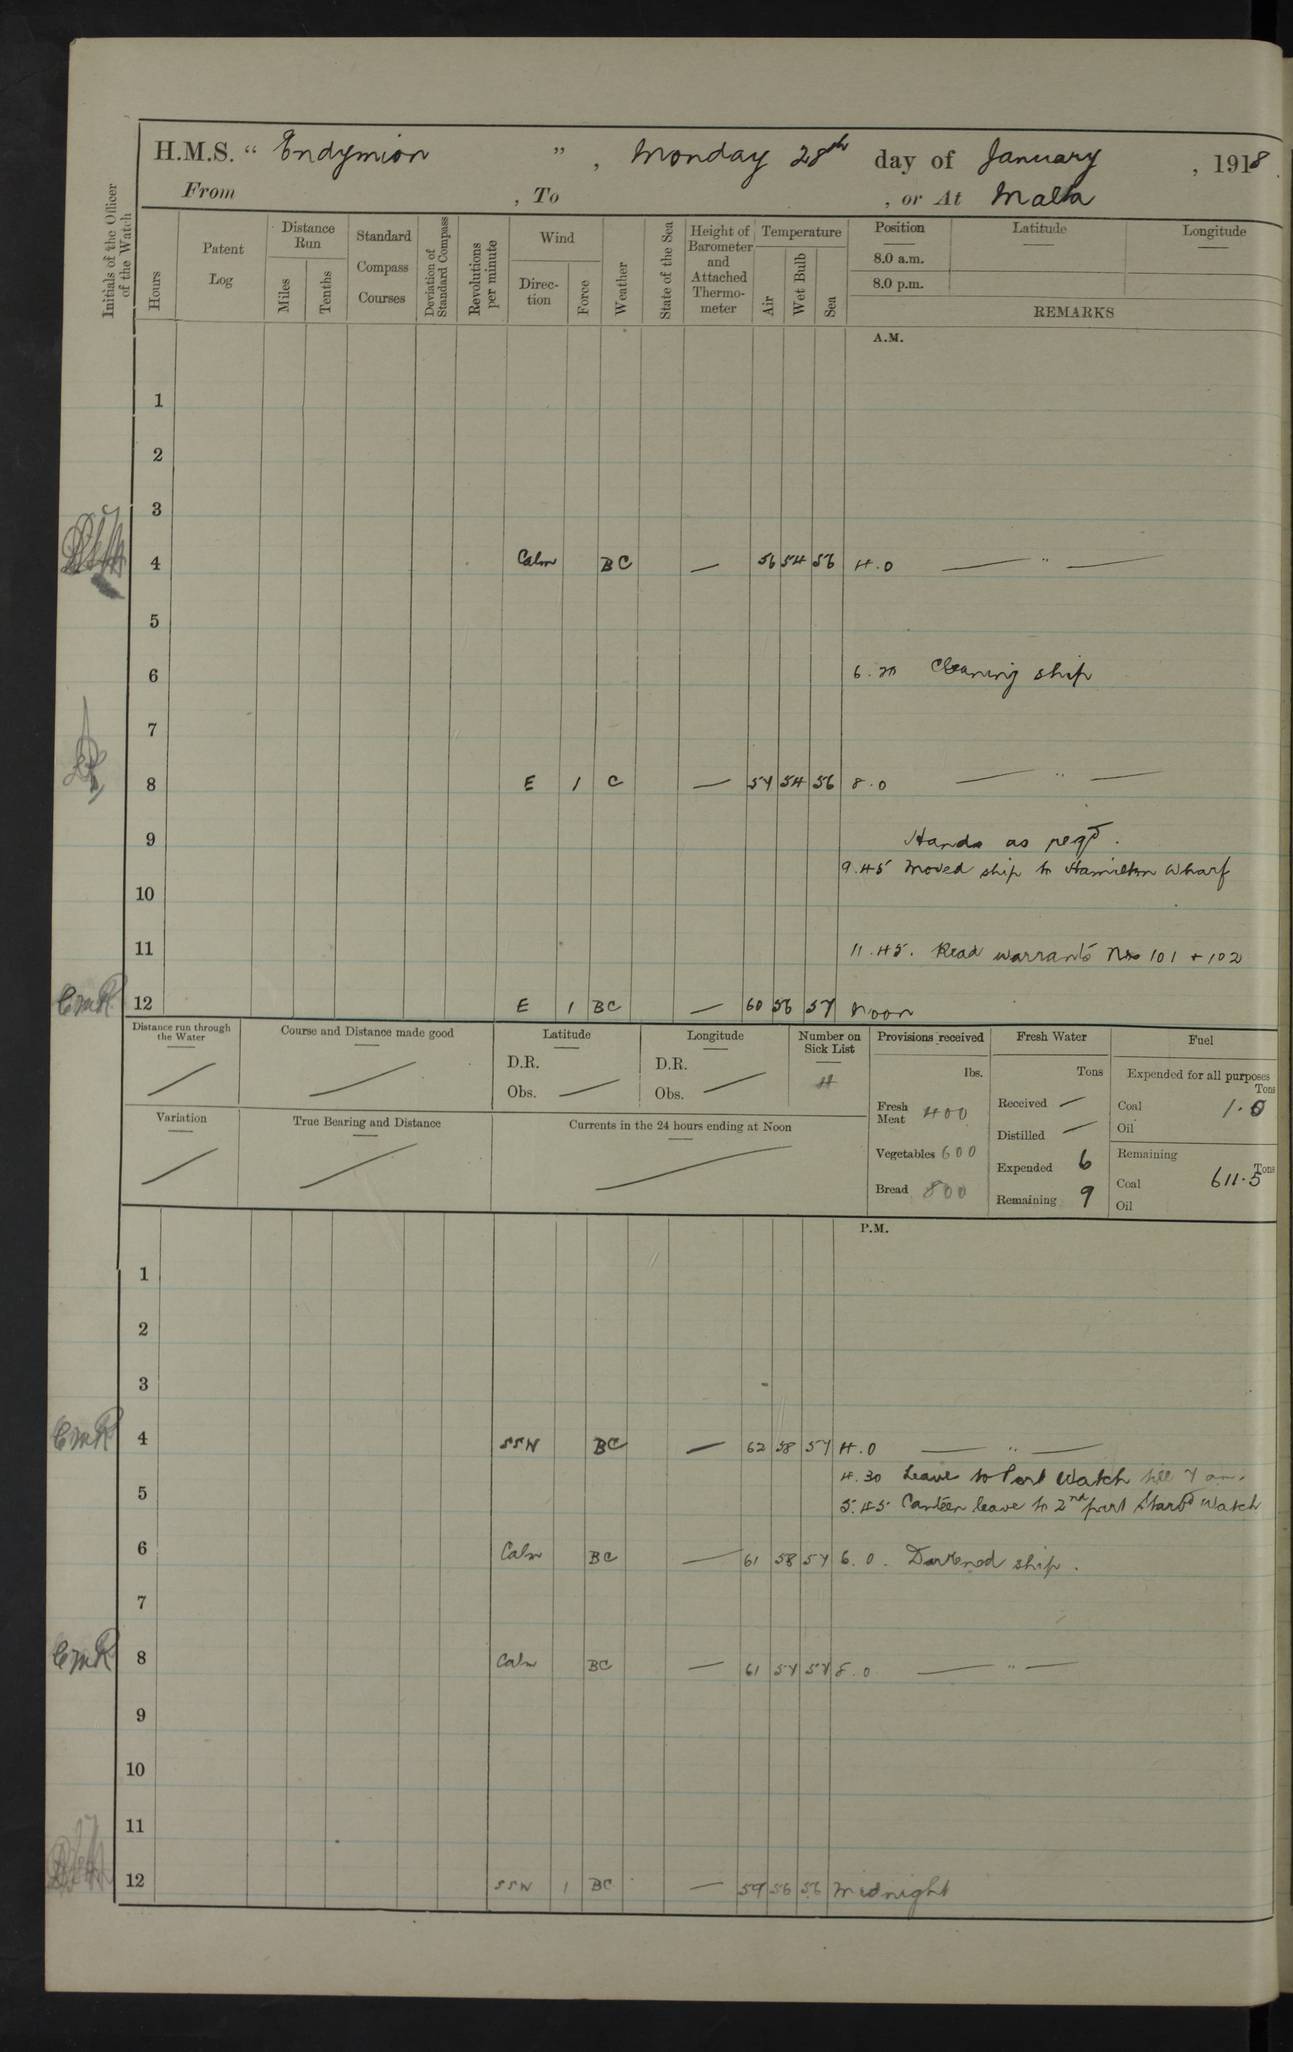 H.M.S. “ Endymion ” , Monday 28th day of January , 1918.
From , To , or At Malta
Initials of the Officer of the Watch
Hours
Patent Log
Distance Run
Miles
Tenths
Standard Compass Courses
Deviation of Standard Compass
Revolutions per minute
Wind
Direction
Force
Weather
State of the Sea
Height of Barometer and Attached Thermometer
Temperature
Air
Wet Bulb
Sea
Position
8.0 a.m.
8.0 p.m.
Latitude
Longitude
REMARKS
A.M.
1
2
3
4 Calm BC — 56 54 56 4.0 — " —
5
6 6.20 Cleaning ship
7
8 E 1 C — 57 54 56 8.0 — " —
9 Hands as reqd.
9.45 Moved ship to Hamilton Wharf
10
11 11.45. Read warrants Nos 101 + 102
CMR 12 E 1 BC — 60 56 57 Noon
Distance run through the Water
Course and Distance made good
Latitude
D.R.
Obs. —
Longitude
D.R.
Obs. —
Number on Sick List
4
Variation
True Bearing and Distance
Currents in the 24 hours ending at Noon
Provisions received
lbs.
Fresh Meat 400
Vegetables 600
Bread 800
Fresh Water
Tons
Received —
Distilled —
Expended 6
Remaining 9
Fuel
Expended for all purposes
Tons
Coal 1.0
Oil
Remaining
Tons
Coal 611.5
Oil
P.M.
1
2
3
CMR 4 SSW BC — 62 58 57 4.0 — " —
4.30 Leave to Port Watch till 7 am.
5 5.45 Canteen leave to 2nd part Starbd Watch
6 Calm BC — 61 58 57 6.0. Darkened ship.
7
CMR 8 Calm BC — 61 57 57 8.0 — " —
9
10
11
12 SSW 1 BC — 59 56 56 Midnight